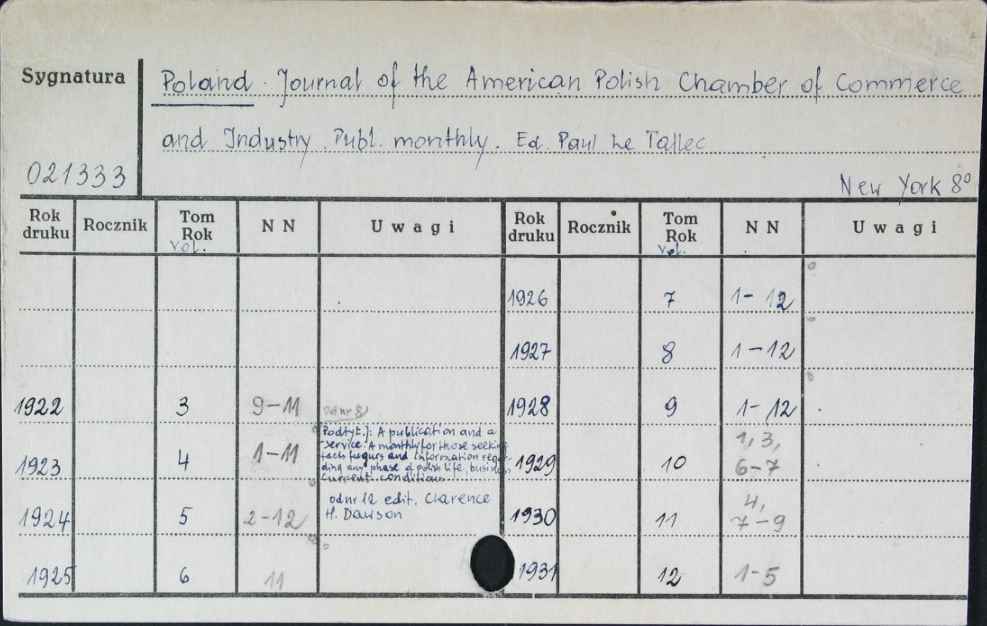 Sygnatura
Poland. Journal of the American Polish Chamber of Commerce
and Industry. Publ. monthly. Ed. Paul Le Tallec
021333
New York 8°
Rok druku Rocznik Tom Rok vol. N N Uwagi Rok druku Rocznik Tom Rok vol. N N Uwagi
1926 7 1-12
1927 8 1-12
1922 3 9-11 od nr 8 1928 9 1-12
Podtyt.: A publication and a
service. A monthly for those seeking
1923 4 1-11 facts and information regar- 1929 10 1, 3,
6-7
ding any phase of polish life, busines
current conditions
1924 5 2-12 od nr 12 edit. Clarence 1930 11 4,
7-9
H. Dawson
1925 6 11 1931 12 1-5